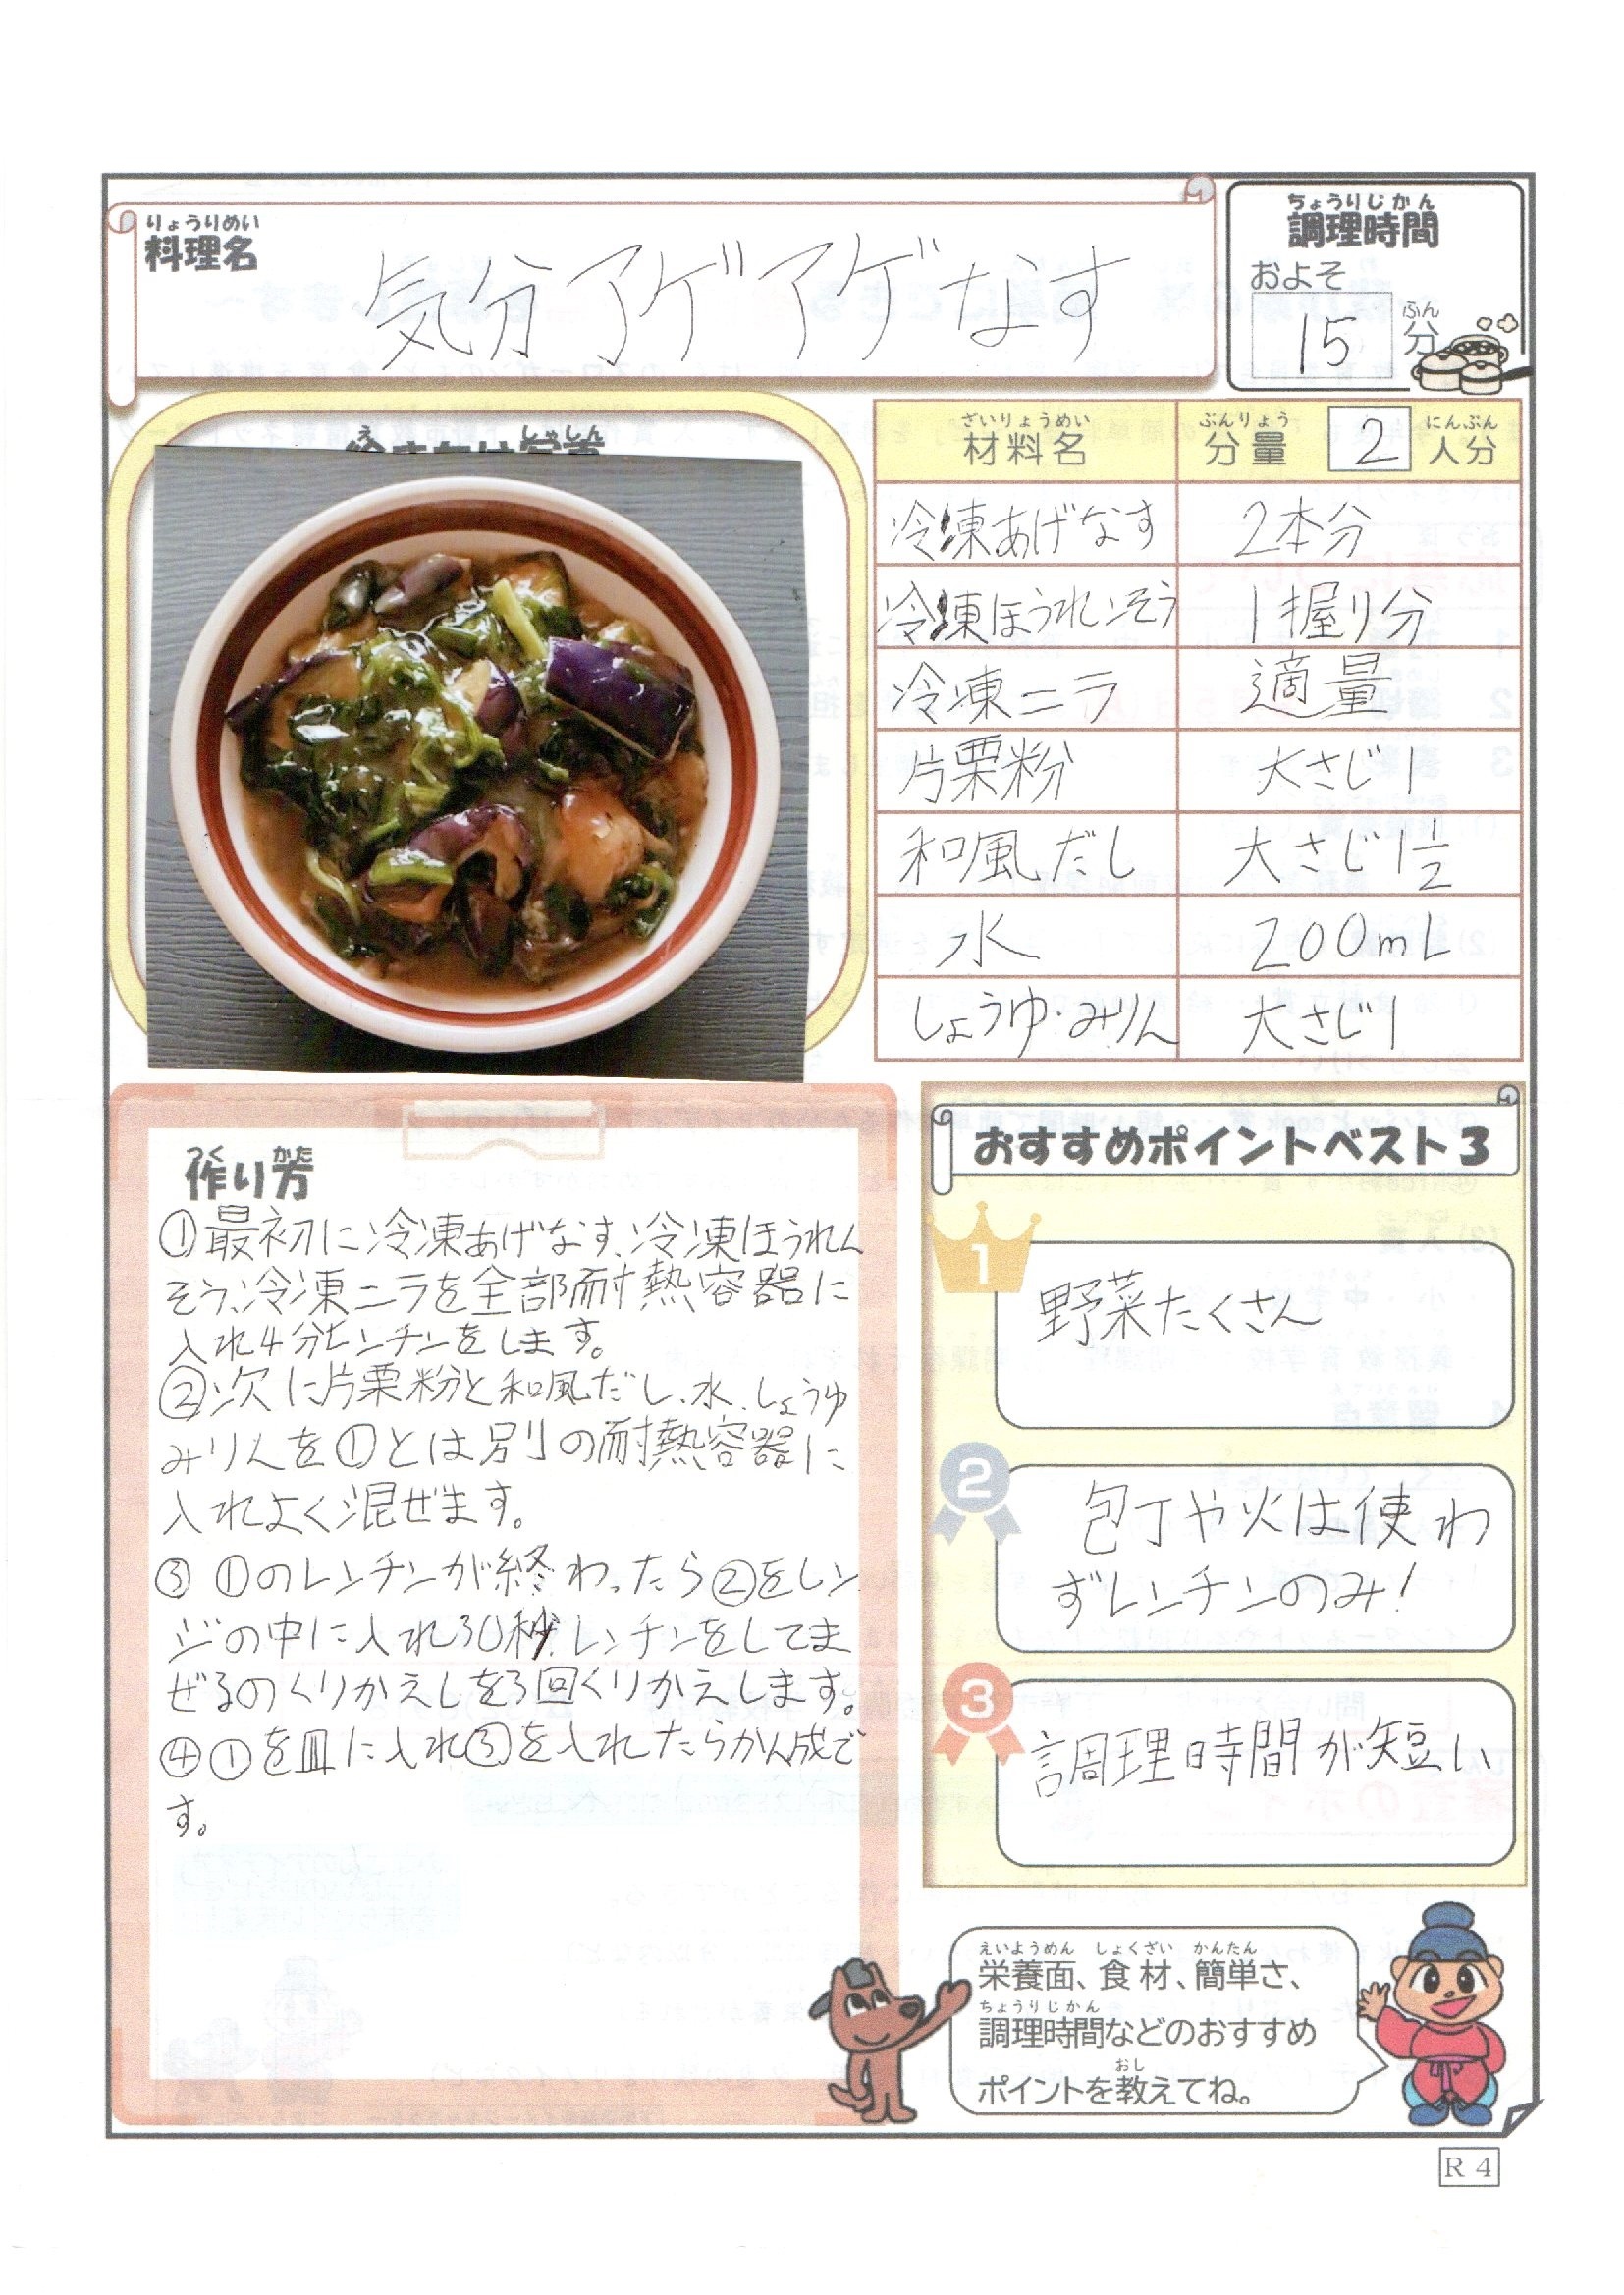 りょうりめい
料理名
気分アゲアゲなす
ちょうりじかん
調理時間
およそ
15 分
ふん
しゃしん
ざいりょうめい ぶんりょう にんぶん
材料名 分量 2 人分
冷凍あげなす 2本分
冷凍ほうれんそう 1握り分
冷凍ニラ 適量
片栗粉 大さじ1
和風だし 大さじ1 1/2
水 200mL
しょうゆ・みりん 大さじ1
つく かた
作り方
①最初に冷凍あげなす、冷凍ほうれん
そう、冷凍ニラを全部耐熱容器に
入れ4分レンチンをします。
②次に片栗粉と和風だし、水、しょうゆ
みりんを①とは別の耐熱容器に
入れよく混ぜます。
③ ①のレンチンが終わったら②をレン
ジの中に入れ30秒レンチンをしてま
ぜるのくりかえしを3回くりかえします。
④①を皿に入れ③を入れたらかん成で
す。
おすすめポイントベスト3
1
野菜たくさん
2
包丁や火は使わ
ずレンチンのみ!
3
調理時間が短い
えいようめん しょくざい かんたん
栄養面、食材、簡単さ、
ちょうりじかん
調理時間などのおすすめ
おし
ポイントを教えてね。
R4